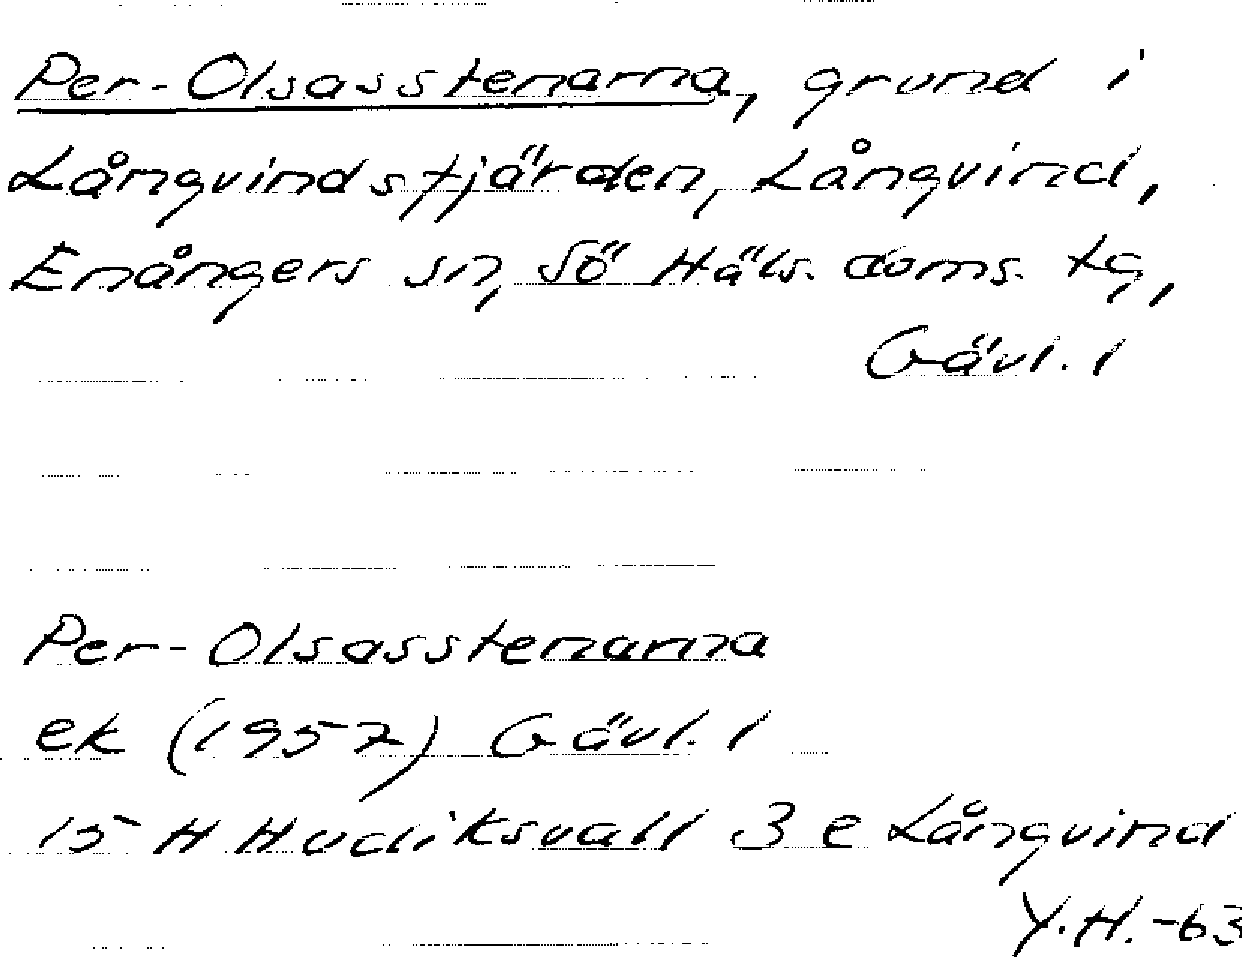 Per-Olsasstenarna, grund i
Långvindsfjärden, Långvind,
Enångers sn, Sö Häls. doms. tg,
Gävl. l
Per-Olsasstenarna
ek (1957) Gävl. l
15 H Hudiksvall 3 e Långvind
Y.H.-63